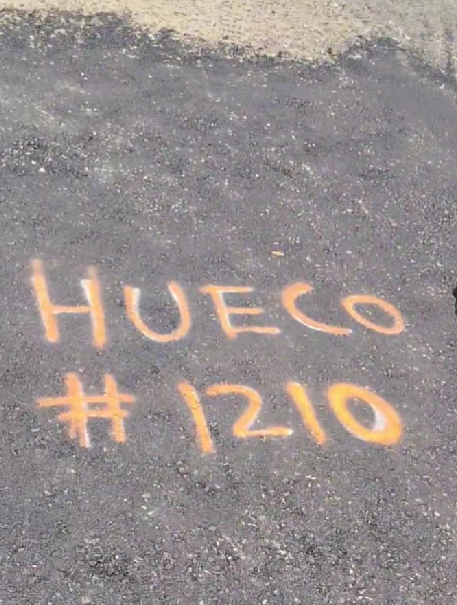 HUECO
# 1210